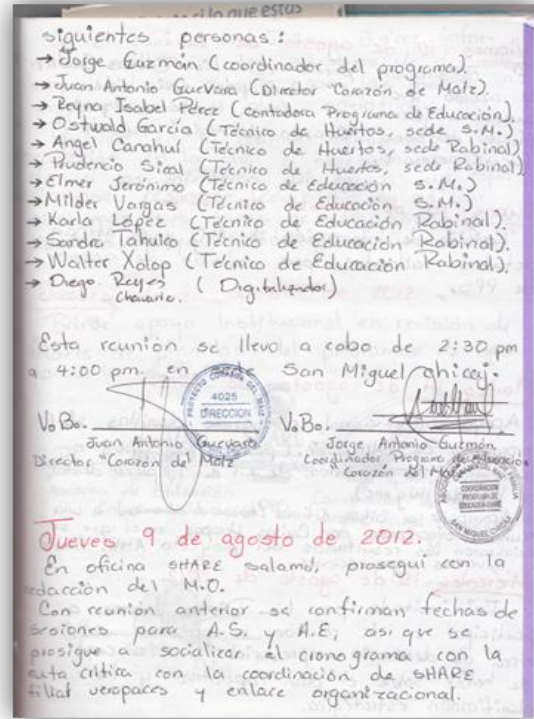 siguientes personas:
→ Jorge Guzmán (coordinador del programa).
→ Juan Antonio Guevara (Director "Corazón de Maíz").
→ Reyna Isabel Pérez (contadora Programa de Educación).
→ Ostwald García (Técnico de Huertos, sede S.M.)
→ Angel Canahuí (Técnico de Huertos, sede Rabinal)
→ Prudencio Sical (Técnico de Huertos, sede Rabinal)
→ Elmer Jerónimo (Técnico de Educación S.M.)
→ Milder Vargas (Técnico de Educación S.M.)
→ Karla López (Técnico de Educación Rabinal).
→ Sandra Tahuico (Técnico de Educación Rabinal).
→ Walter Xolop (Técnico de Educación Rabinal).
→ Diego Reyes (Digitalizador)
Chavarría.
Esta reunión se llevo a cabo de 2:30 pm
a 4:00 pm. en sede San Miguel chicaj.
4025
DIRECCION
Vo Bo. Vo Bo.
Juan Antonio Guevara. Jorge Antonio Guzmán
Director "Corazón del Maíz Coordinador Programa de Educación
"Corazón del Maíz
COORDINACION
PROGRAMA DE
SAN MIGUEL CHICAJ
Jueves 9 de agosto de 2012.
En oficina SHARE salamá, proseguí con la
redacción del M.O.
Con reunión anterior se confirman fechas de
sesiones para A.S. y A.E, asi que se
prosigue a socializar el cronograma con la
ruta crítica con la coordinación de SHARE
filial verapaces y enlace organizacional.